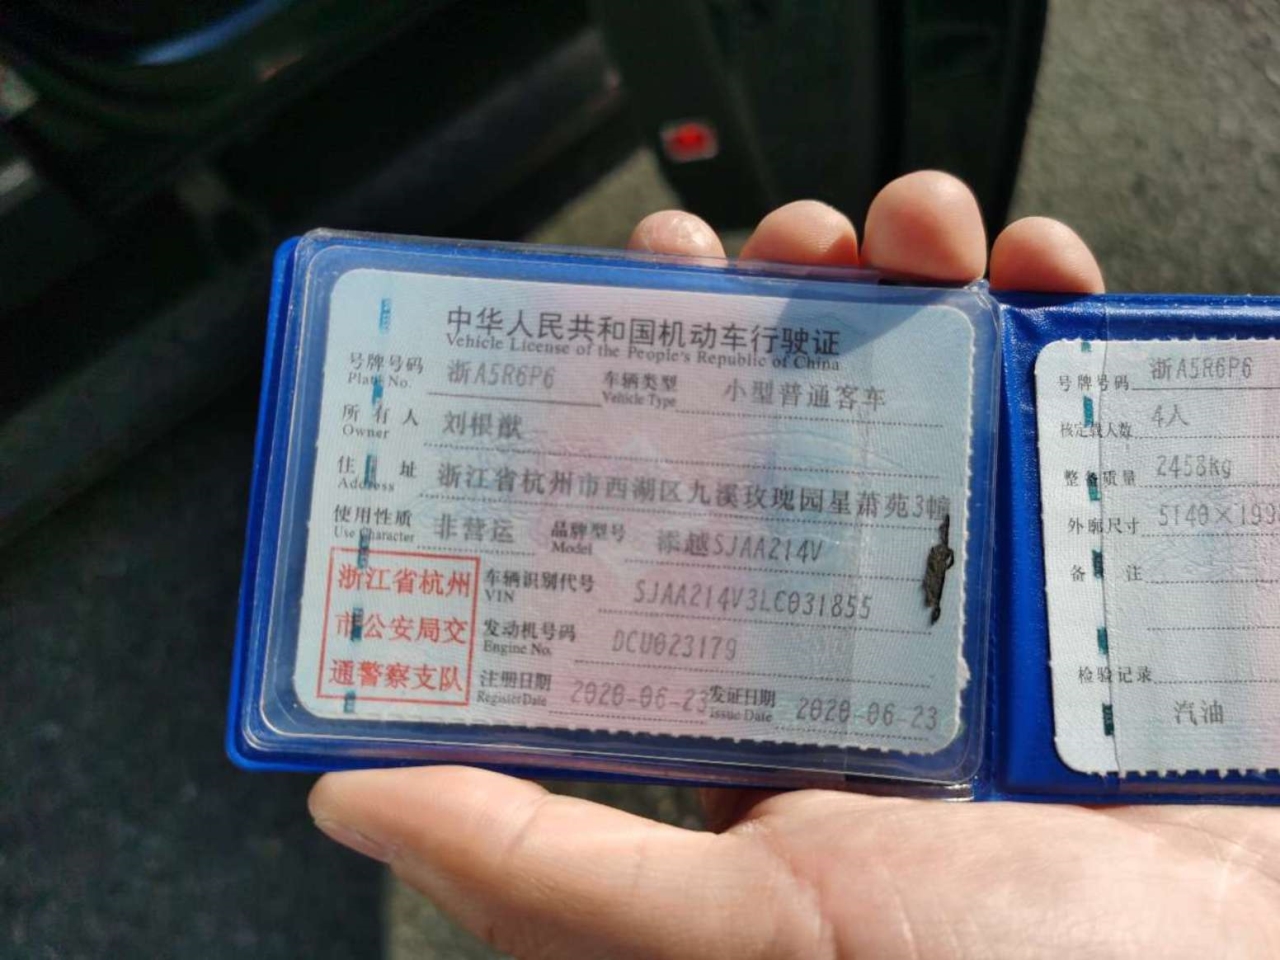 中华人民共和国机动车行驶证
Vehicle License of the People's Republic of China
号牌号码 浙A5R6P6 车辆类型 小型普通客车
Plate No. Vehicle Type
所有人 刘根猷
Owner
住址 浙江省杭州市西湖区九溪玫瑰园星萧苑3幢
Address
使用性质 非营运 品牌型号 添越SJAA214V
Use Character Model
浙江省杭州
市公安局交
通警察支队
车辆识别代号 SJAA214V3LC031855
VIN
发动机号码 DCU023179
Engine No.
注册日期 2020-06-23 发证日期 2020-06-23
Register Date Issue Date
号牌号码 浙A5R6P6
核定载人数 4人
整备质量 2458kg
外廓尺寸 5140×199
备注
检验记录
汽油